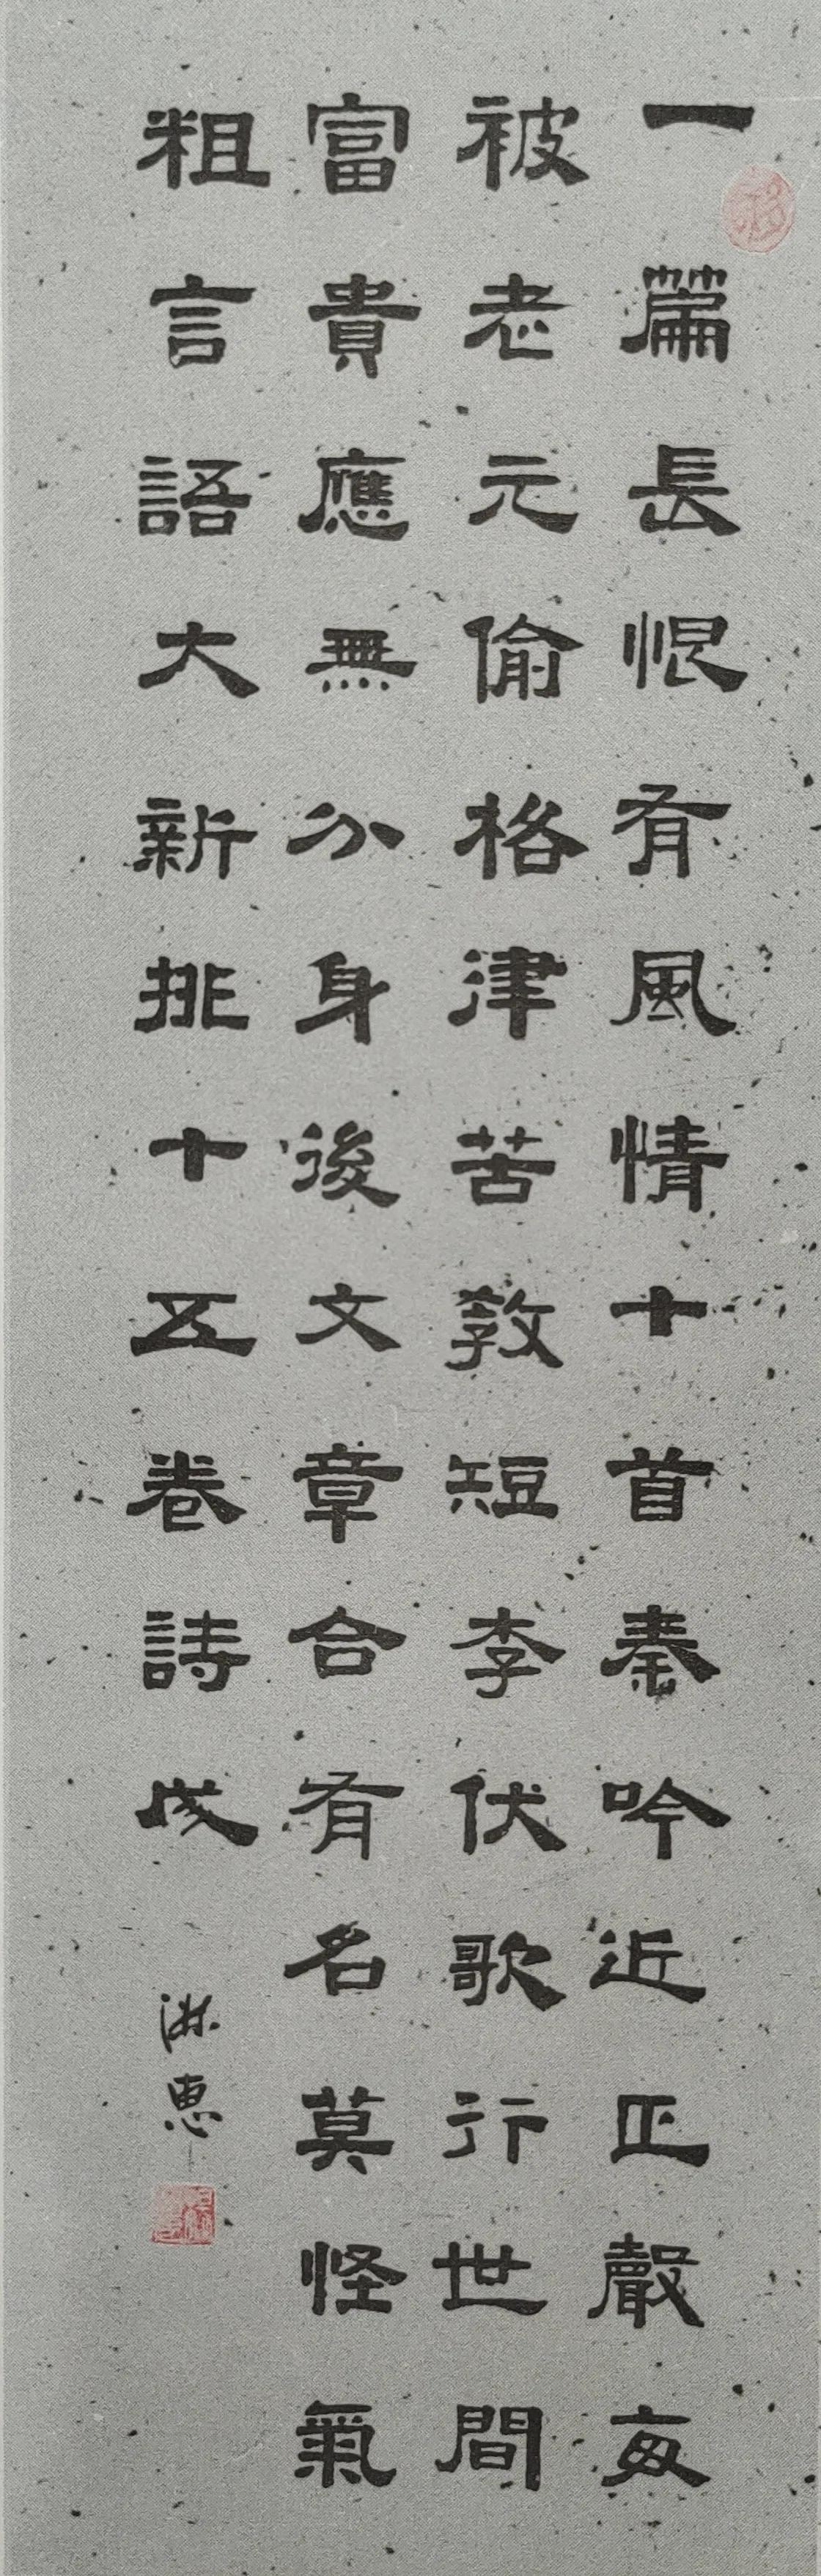 一篇長恨有風情十首秦吟近正聲每
被老元偷格律苦教短李伏歌行世間
富貴應無分身後文章合有名莫怪氣
粗言語大新排十五卷詩成